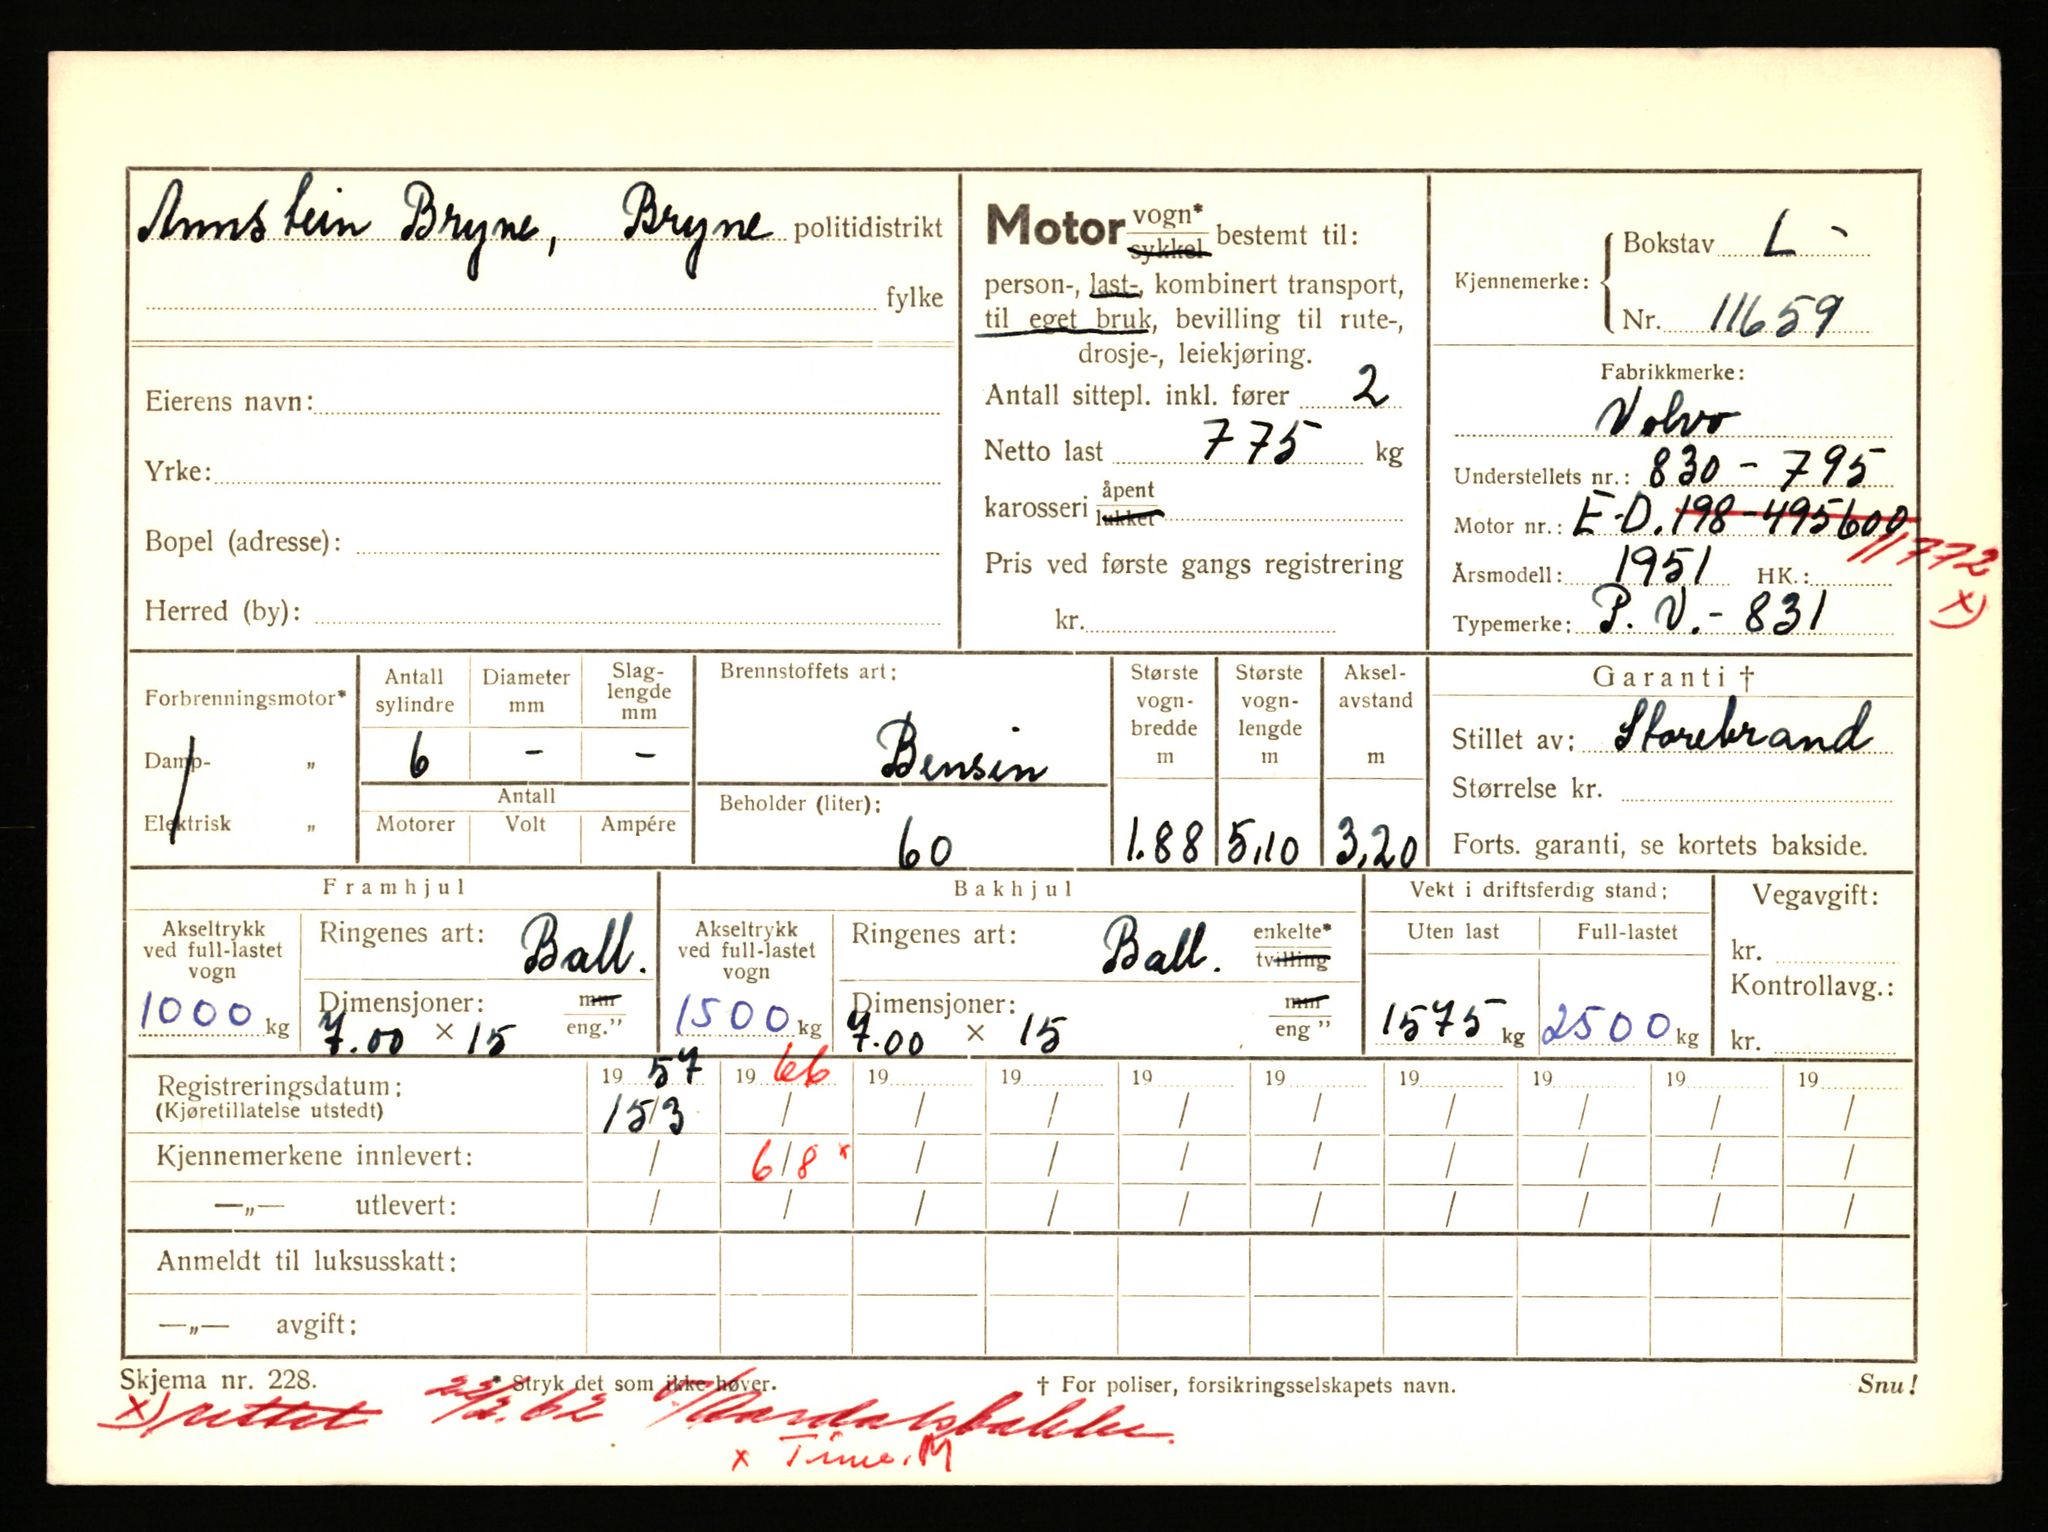 Arnstein Bryne, Bryne politidistrikt
fylke
Eierens navn:
Yrke:
Bopel (adresse):
Herred (by):
Motor vogn* sykkel bestemt til:
person-, last-, kombinert transport,
til eget bruk, bevilling til rute-,
drosje-, leiekjøring.
Antall sittepl. inkl. fører 2
Netto last 775 kg
karosseri åpent lukket
Pris ved første gangs registrering
kr.
Kjennemerke: Bokstav L-
Nr. 11659
Fabrikkmerke:
Volvo
Understellets nr.: 830-795
Motor nr.: E-D. 198-495600
11772
Årsmodell: 1951 HK.:
x)
Typemerke: P.V.-831
Forbrenningsmotor*
Damp- „
Elektrisk „
Antall sylindre
Diameter mm
Slag-lengde mm
6 - -
Antall
Motorer Volt Ampére
Brennstoffets art:
Bensin
Beholder (liter):
60
Største vogn-bredde m
1.88
Største vogn-lengde m
5,10
Aksel-avstand m
3,20
Garanti †
Stillet av: Storebrand
Størrelse kr.
Forts. garanti, se kortets bakside.
Framhjul
Akseltrykk ved full-lastet vogn
1000 kg
Ringenes art: Ball.
Dimensjoner: mm
7.00 × 15 eng."
Bakhjul
Akseltrykk ved full-lastet vogn
1500 kg
Ringenes art: Ball. enkelte* tvilling
Dimensjoner: mm
7.00 × 15 eng "
Vekt i driftsferdig stand:
Uten last Full-lastet
1575 kg 2500 kg
Vegavgift:
kr.
Kontrollavg.:
kr.
Registreringsdatum: 19 57 19 66 19 19 19 19 19 19 19 19
(Kjøretillatelse utstedt) 15/3 / / / / / / / / /
Kjennemerkene innlevert: / 6/8 x / / / / / / / /
—„— utlevert: / / / / / / / / / /
Anmeldt til luksusskatt:
—„— avgift:
Skjema nr. 228. * Stryk det som ikke høver. † For poliser, forsikringsselskapets navn. Snu!
x) rettet 22/2.62
x Time. M